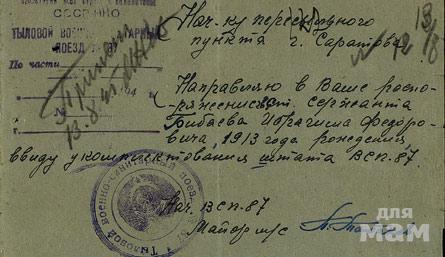 СССР НКО
ТЫЛОВОЙ ВОЕННО-САНИТАРНЫЙ
ПОЕЗД № 87
По части
194
Принят
13.8.45
Нач-ку пересыльного
пункта г. Саратова
Направляю в Ваше распо-
ряжение ст. Сержанта
Бибаева Ибрагима Федоро-
вича, 1913 года рождения
ввиду укомплектования штата ВСП-87.
Нач. ВСП-87
Майор м/с
ТЫЛОВОЙ ВОЕННО-САНИТАРНЫЙ ПОЕЗД
для
мам